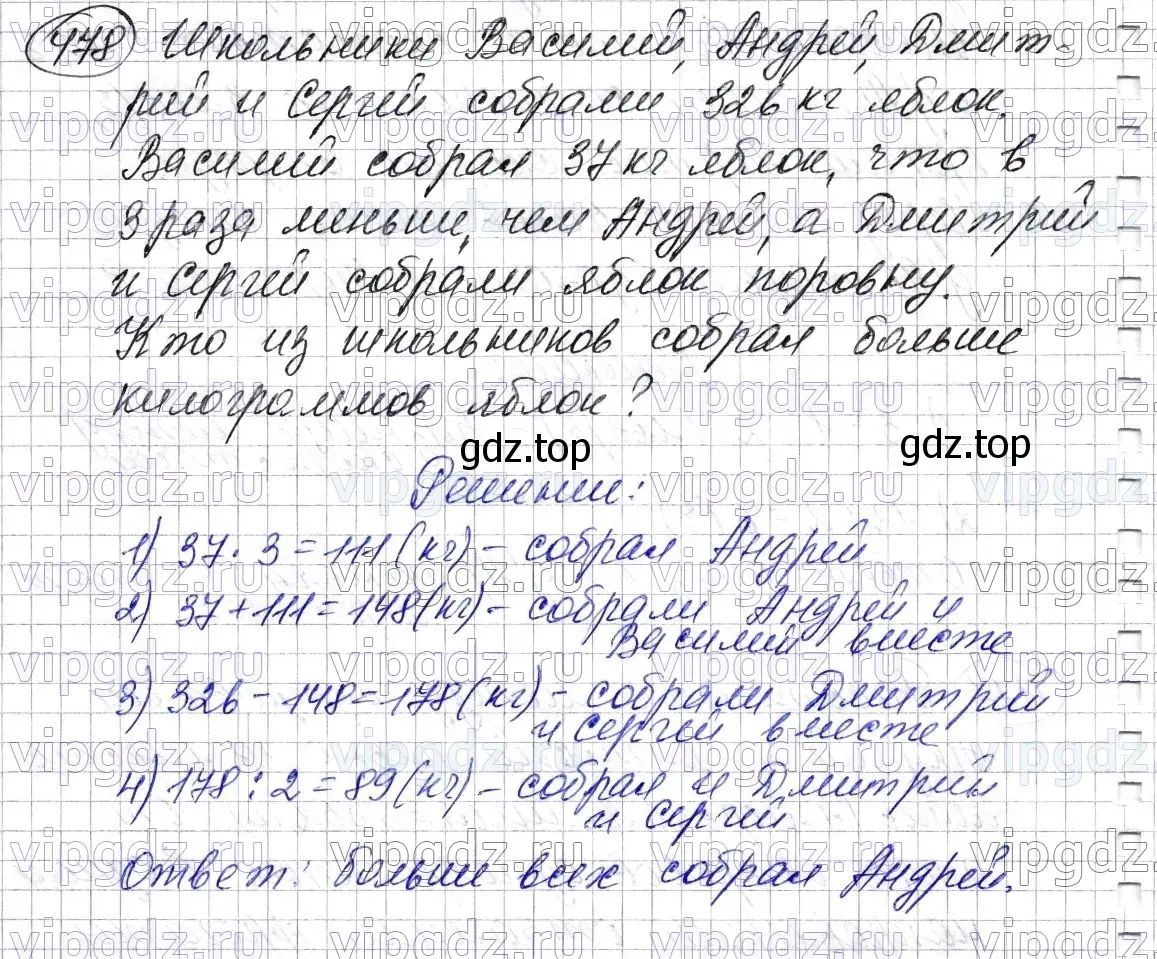 478 Школьники Василий, Андрей, Дмит-
рий и Сергей собрали 326 кг яблок.
Василий собрал 37 кг яблок, что в
3 раза меньше, чем Андрей, а Дмитрий
и Сергей собрали яблок поровну.
Кто из школьников собрал больше
килограммов яблок?
gdz.top gdz.top
Решение:
1) 37 · 3 = 111 (кг) – собрал Андрей
2) 37 + 111 = 148 (кг) – собрали Андрей и
Василий вместе
3) 326 – 148 = 178 (кг) – собрали Дмитрий
и Сергей вместе
4) 178 : 2 = 89 (кг) – собрал и Дмитрий
и Сергей
Ответ: больше всех собрал Андрей.